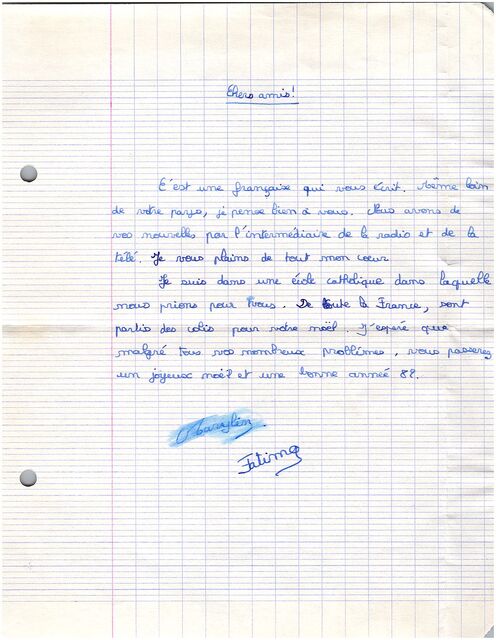 Chers amis!
C'est une française qui vous écrit. Même loin
de votre pays, je pense bien à vous. Nous avons de
vos nouvelles par l'intermédiaire de la radio et de la
télé. Je vous plains de tout mon coeur
Je suis dans une école catholique dans laquelle
nous prions pour vous. De toute la France, sont
partis des colis pour votre noël. J'espère que
malgré tous vos nombreux problèmes, vous passerez
un joyeux noël et une bonne année 82.
Marylin
Fatima